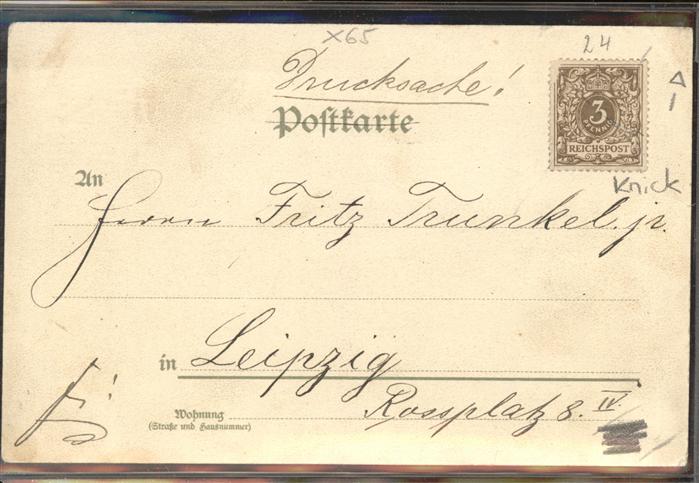 X65
24
Drucksache!
Postkarte
3
PFENNIG
REICHSPOST
Knick
An
Herrn Fritz Trunkel. jr.
in Leipzig
Rossplatz 8. IV.
Wohnung
(Straße und Hausnummer)